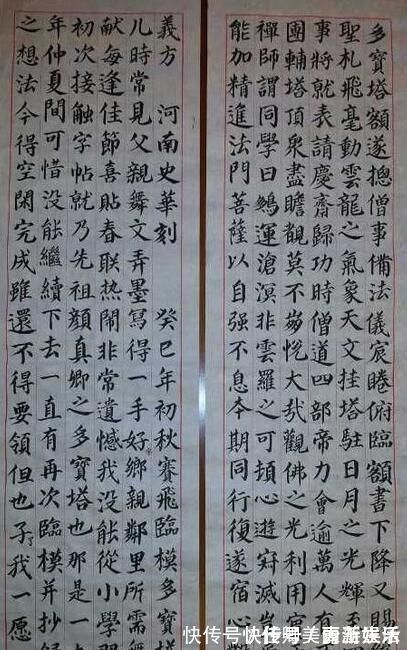 多寶塔額遂揔僧事備法儀宸睠俯臨額書下降又賜
聖札飛毫動雲龍之氣象天文挂塔駐日月之光輝至
事將就表請慶齋歸功時僧道四部帝力會逾萬人有
團輔塔頂衆盡瞻觀莫不崩悅大㢤觀佛之光利用
禪師謂同學曰鵬運滄溟非雲羅之可頓心遊寂滅
能加精進法門菩薩以自强不息本期同行復遂宿心
義方 河南史華刻 癸巳年初秋賽飛臨模多寶塔
儿時常見父親舞文弄墨寫得一手好鄉親鄰里所需
献每逢佳節喜貼春联热閙非常遺憾我没能從小學
初次接触字帖就乃先祖顔真卿之多寶塔也那是一
年仲夏間可惜没能繼續下去一直有再次臨模并抄
之想法今得空閑完成雖還不得要領但也了我一愿
快传号